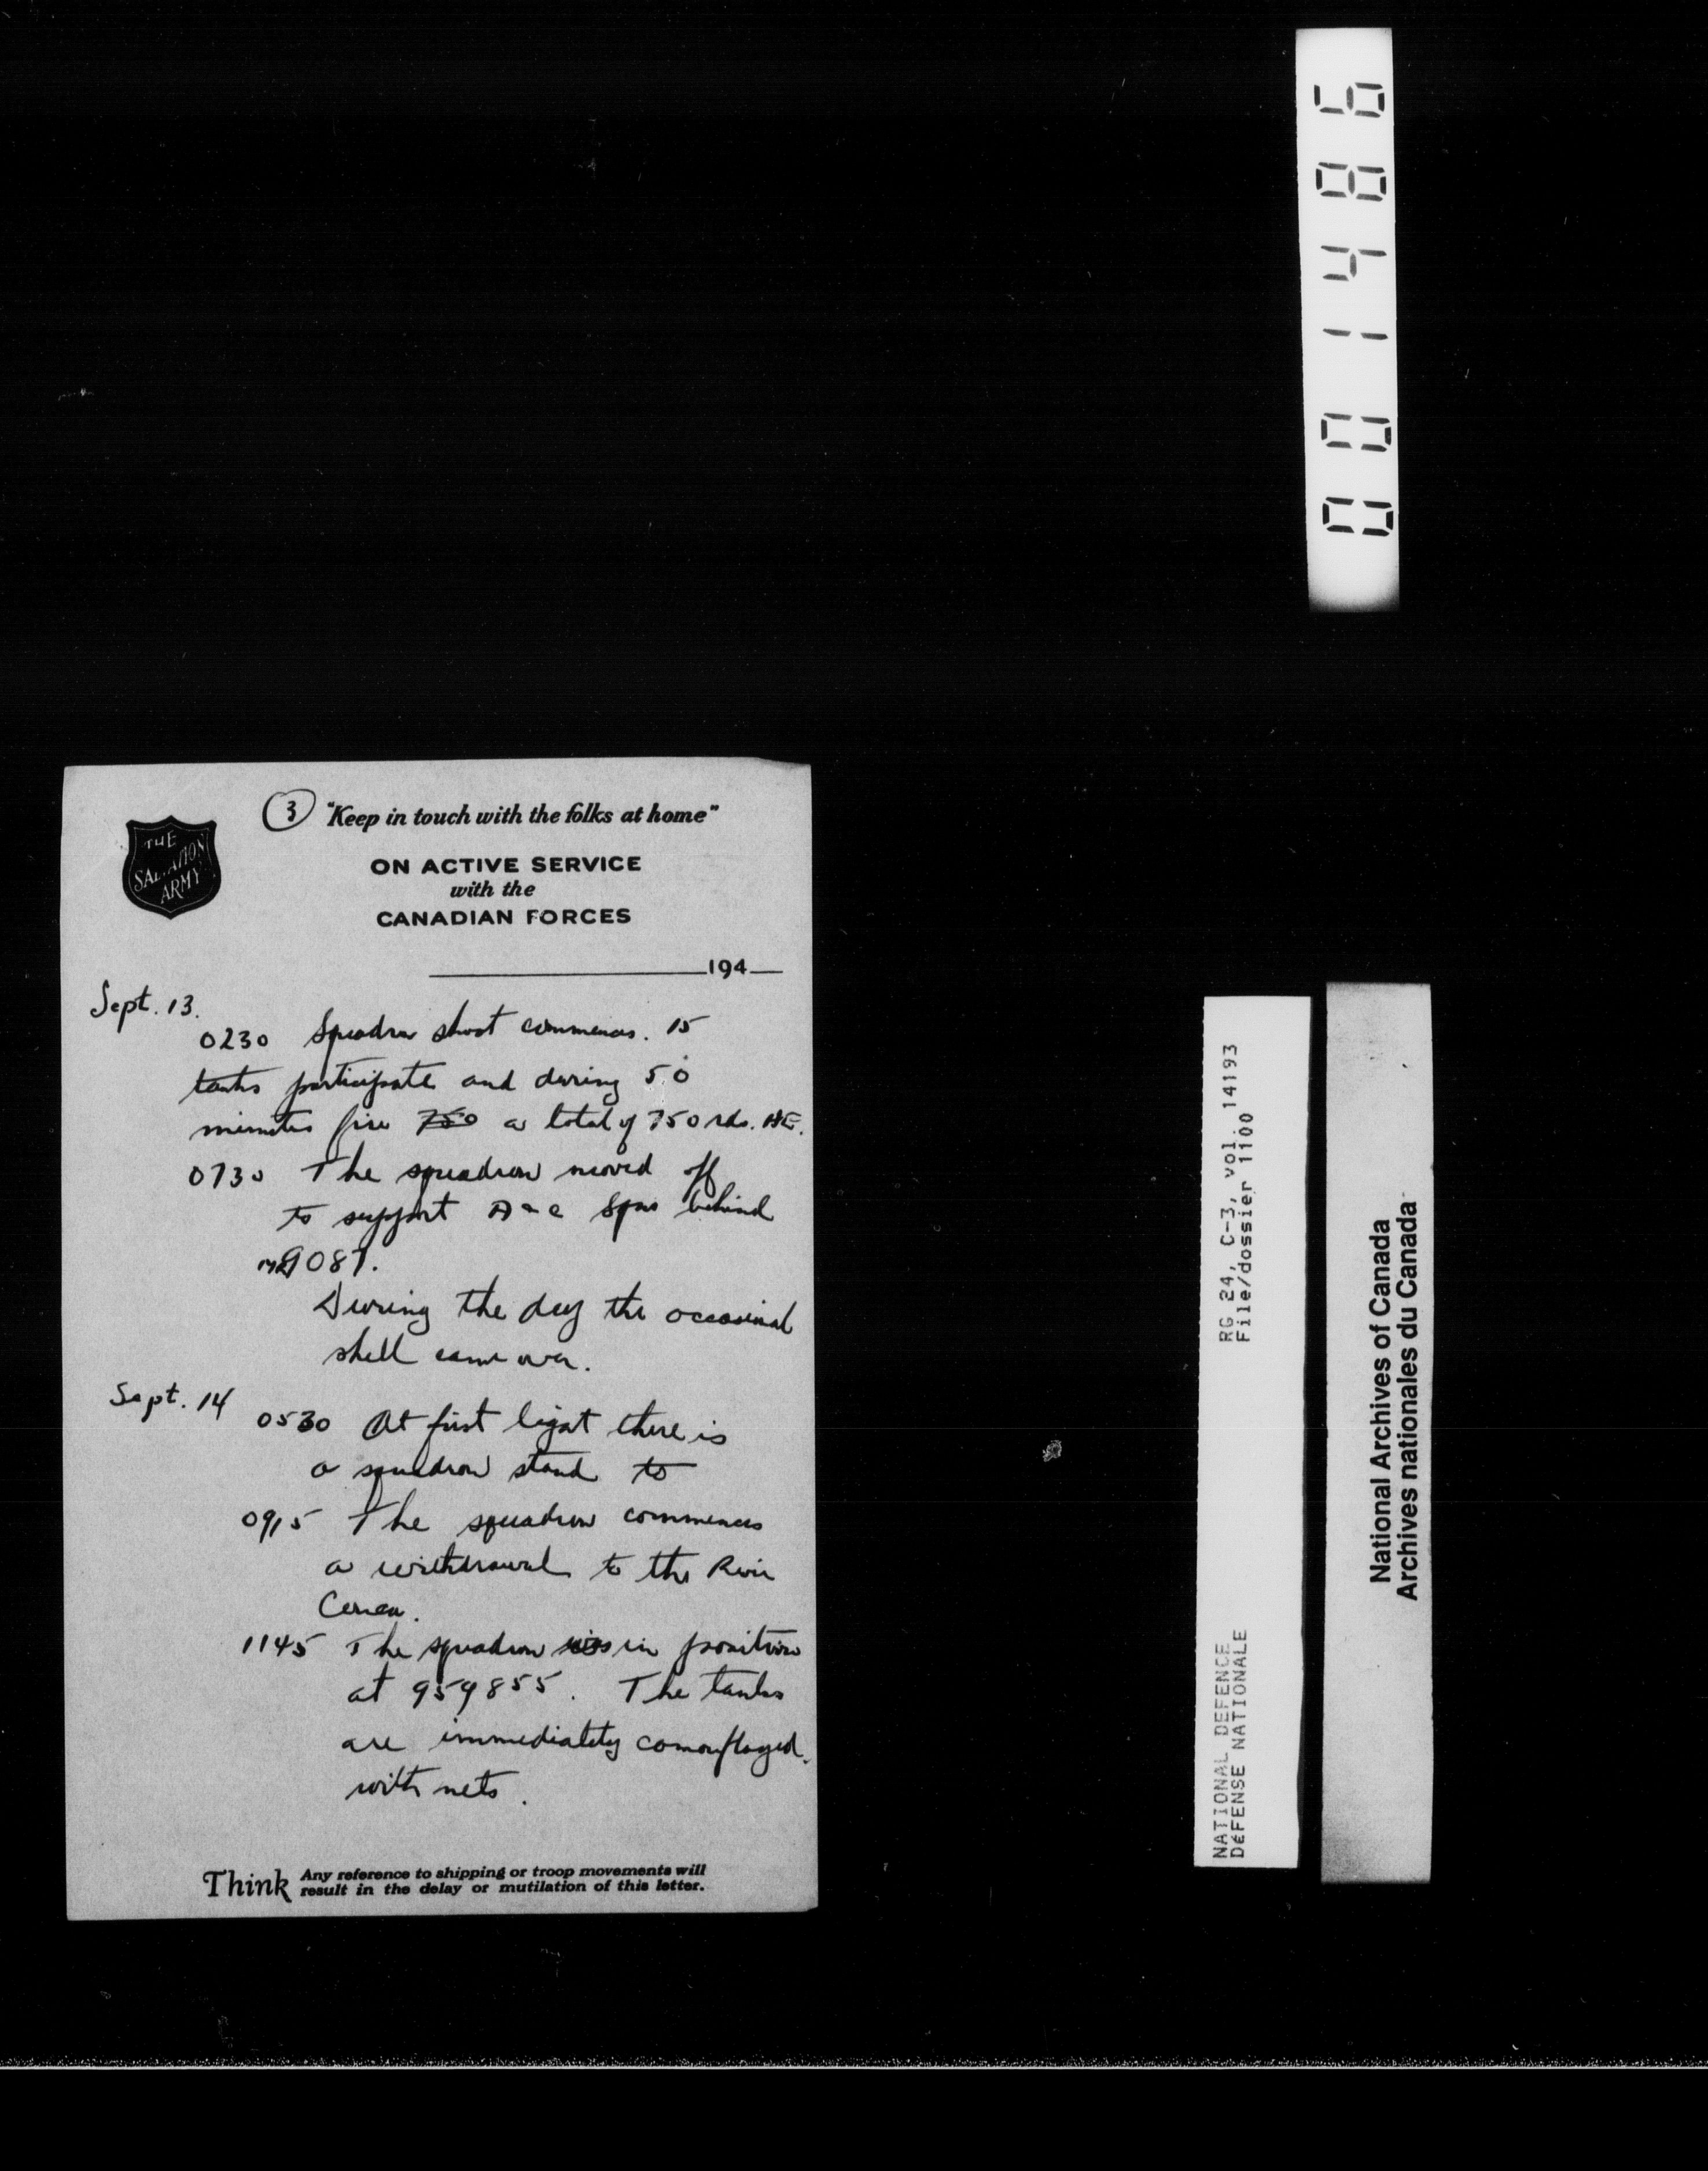 ③ "Keep in touch with the folks at home"
THE
SALVATION
ARMY
ON ACTIVE SERVICE
with the
CANADIAN FORCES
194
Sept. 13.
0230 Squadron shoot commences. 15
tanks participate and during 50
minutes fire 750 a total of 750 rds. HE.
0730 The squadron moved off
to support A & C Sqns behind
9087.
During the day the occasional
shell came over.
Sept. 14
0530 At first light there is
a squadron stand to
0915 The squadron commences
a withdrawal to the River
1145 The squadron is in position
at 959855. The tanks
are immediately comouflaged
with nets.
Think Any reference to shipping or troop movements will
result in the delay or mutilation of this letter.
001486
NATIONAL DEFENCE RG 24, C-3, vol. 14193
DéFENSE NATIONALE File/dossier 1100
National Archives of Canada
Archives nationales du Canada